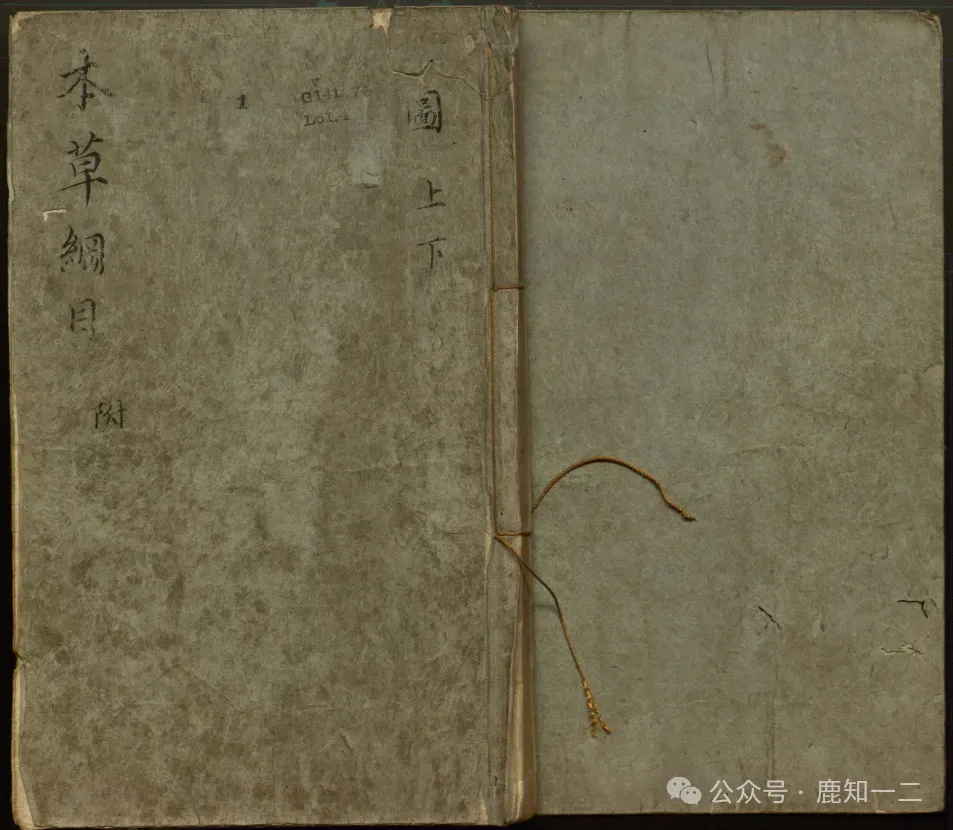 本草綱目
附
1
G141.7
L61.1
圖
上
下
公众号·鹿知一二